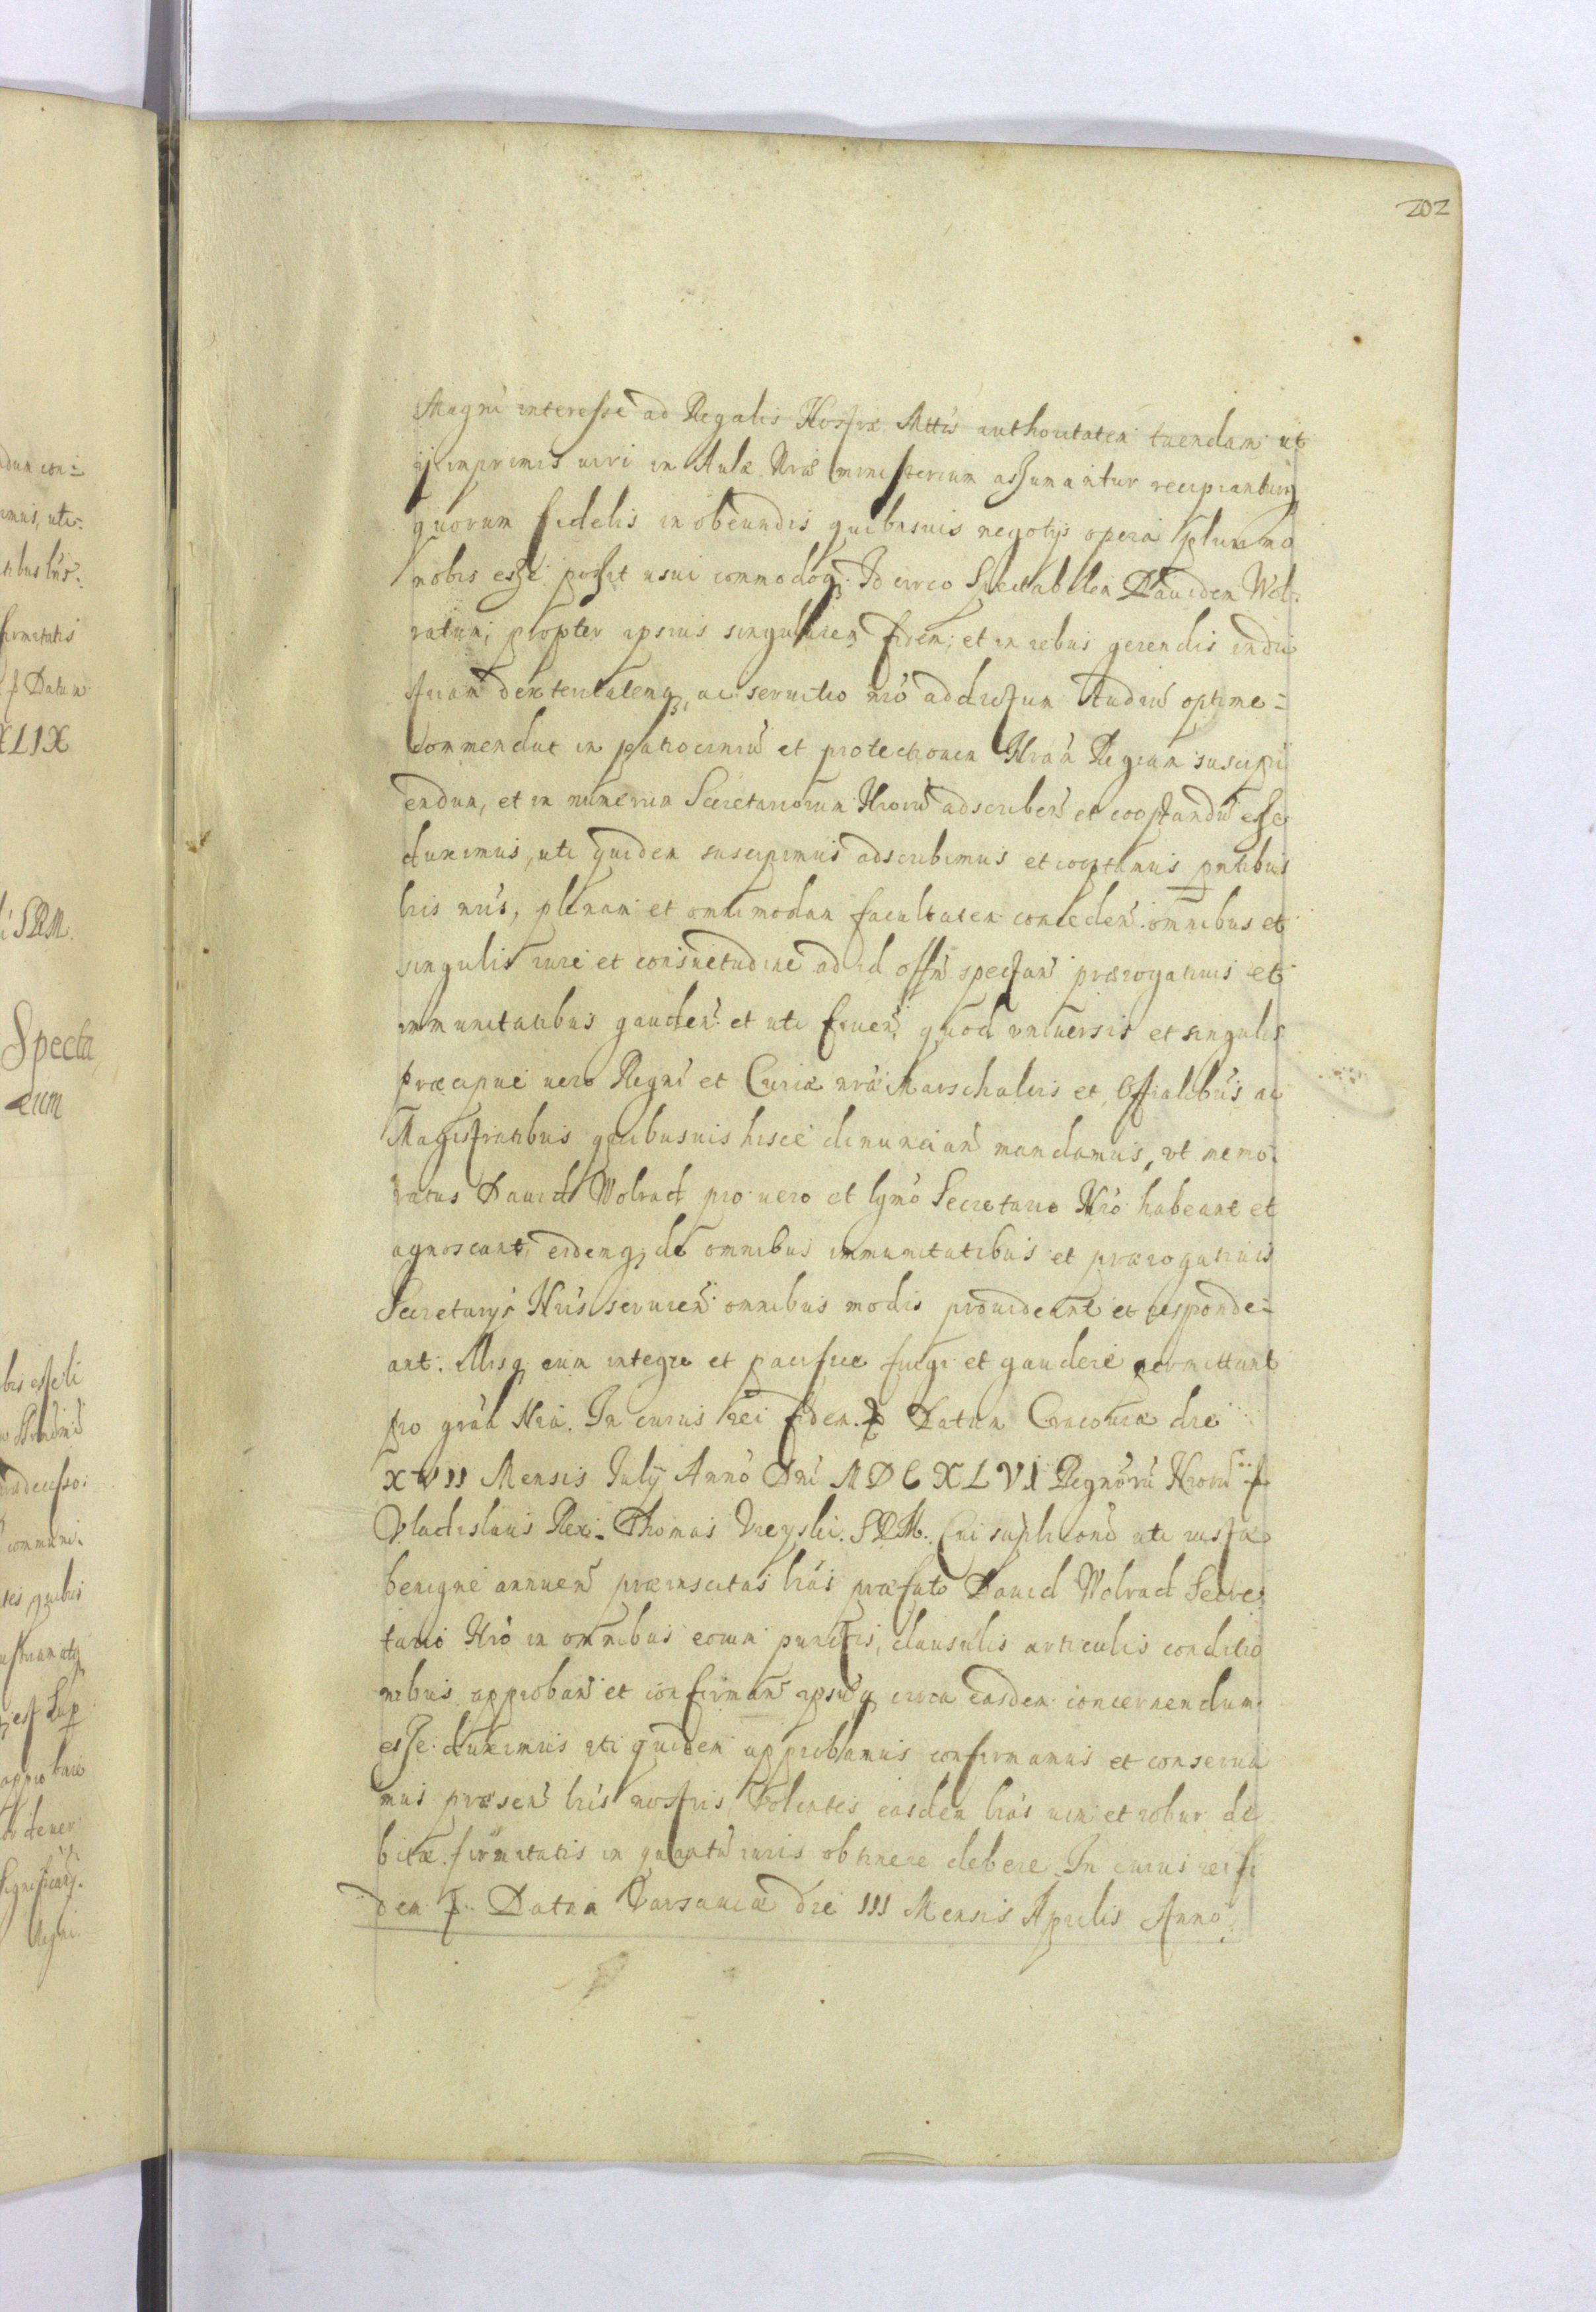 202
Magni interesse ad Regalis Nostræ Mttis authoritatem tuendam ut
ij inprimis uiri in Aulæ Nræ ministerium assumantur recipianturq
quorum fidelis in obeundis quibusuis negotijs opera plurimo
nobis esse possit usui commodoq. Id circo Spectabilem Dauidem Wol:
ratum, propter ipsius singularem fidem, et in rebus gerendis indu
striam dexteritatemq, ac seruitio nro addictum studiu optime =
commendat in patrociniu et protectionem Nram Regiam suscipi
endum, et in numerum Secretariorum Nroru adscriben et cooptandu esse
duximus, uti quidem suscipimus adscribimus et cooptamus pntibus
lris nris, plenam et omnimodam facultatem conceden omnibus et
singulis iure et consuetudine ad id offm spectan prærogatiuis et
immunitatibus gauden et uti fruen, quod vniuersis et singulis
præcipue uero Regni et Curiæ nræ Marschalcis et Offialibus ac
Magistratibus quibusuis hisce denuncian mandamus, vt memo:
ratus Dauid Wolrad pro uero et lgmo Secretario Nro habeant et
agnoscant, eidemq, de omnibus immunitatibus et prærogatiuis
Secretarijs Nris seruien omnibus modis prouideant et responde=
ant. illisq eum integre et pacifice fungi et gaudere permittant
pro grãa Nra. In cuius rei fidem. Datum Cracouiæ die
XVII Mensis Julij Anno Dni MDCXLVI Regnoru Nroru
Vladislaus Rex. Thomas Vieyski. SRM. Cui suplicõni uti iustæ
benigne annuen præinsertas lras præfato Dauid Wolrad Secre
tario Nro in omnibus eorum punctis, clausulis articulis conditio
nibus approban et confirman ipsuq circa easdem concernendum
esse duximus uti quidem approbamus confirmamus et conserua
mus præsen lris nostris, Volentes easdem lras uim et robur de
bitæ firmitatis in quantu iuris obtinere debere. In cuius rei fi
dem Datum Varsauiæ die III Mensis Aprilis Anno